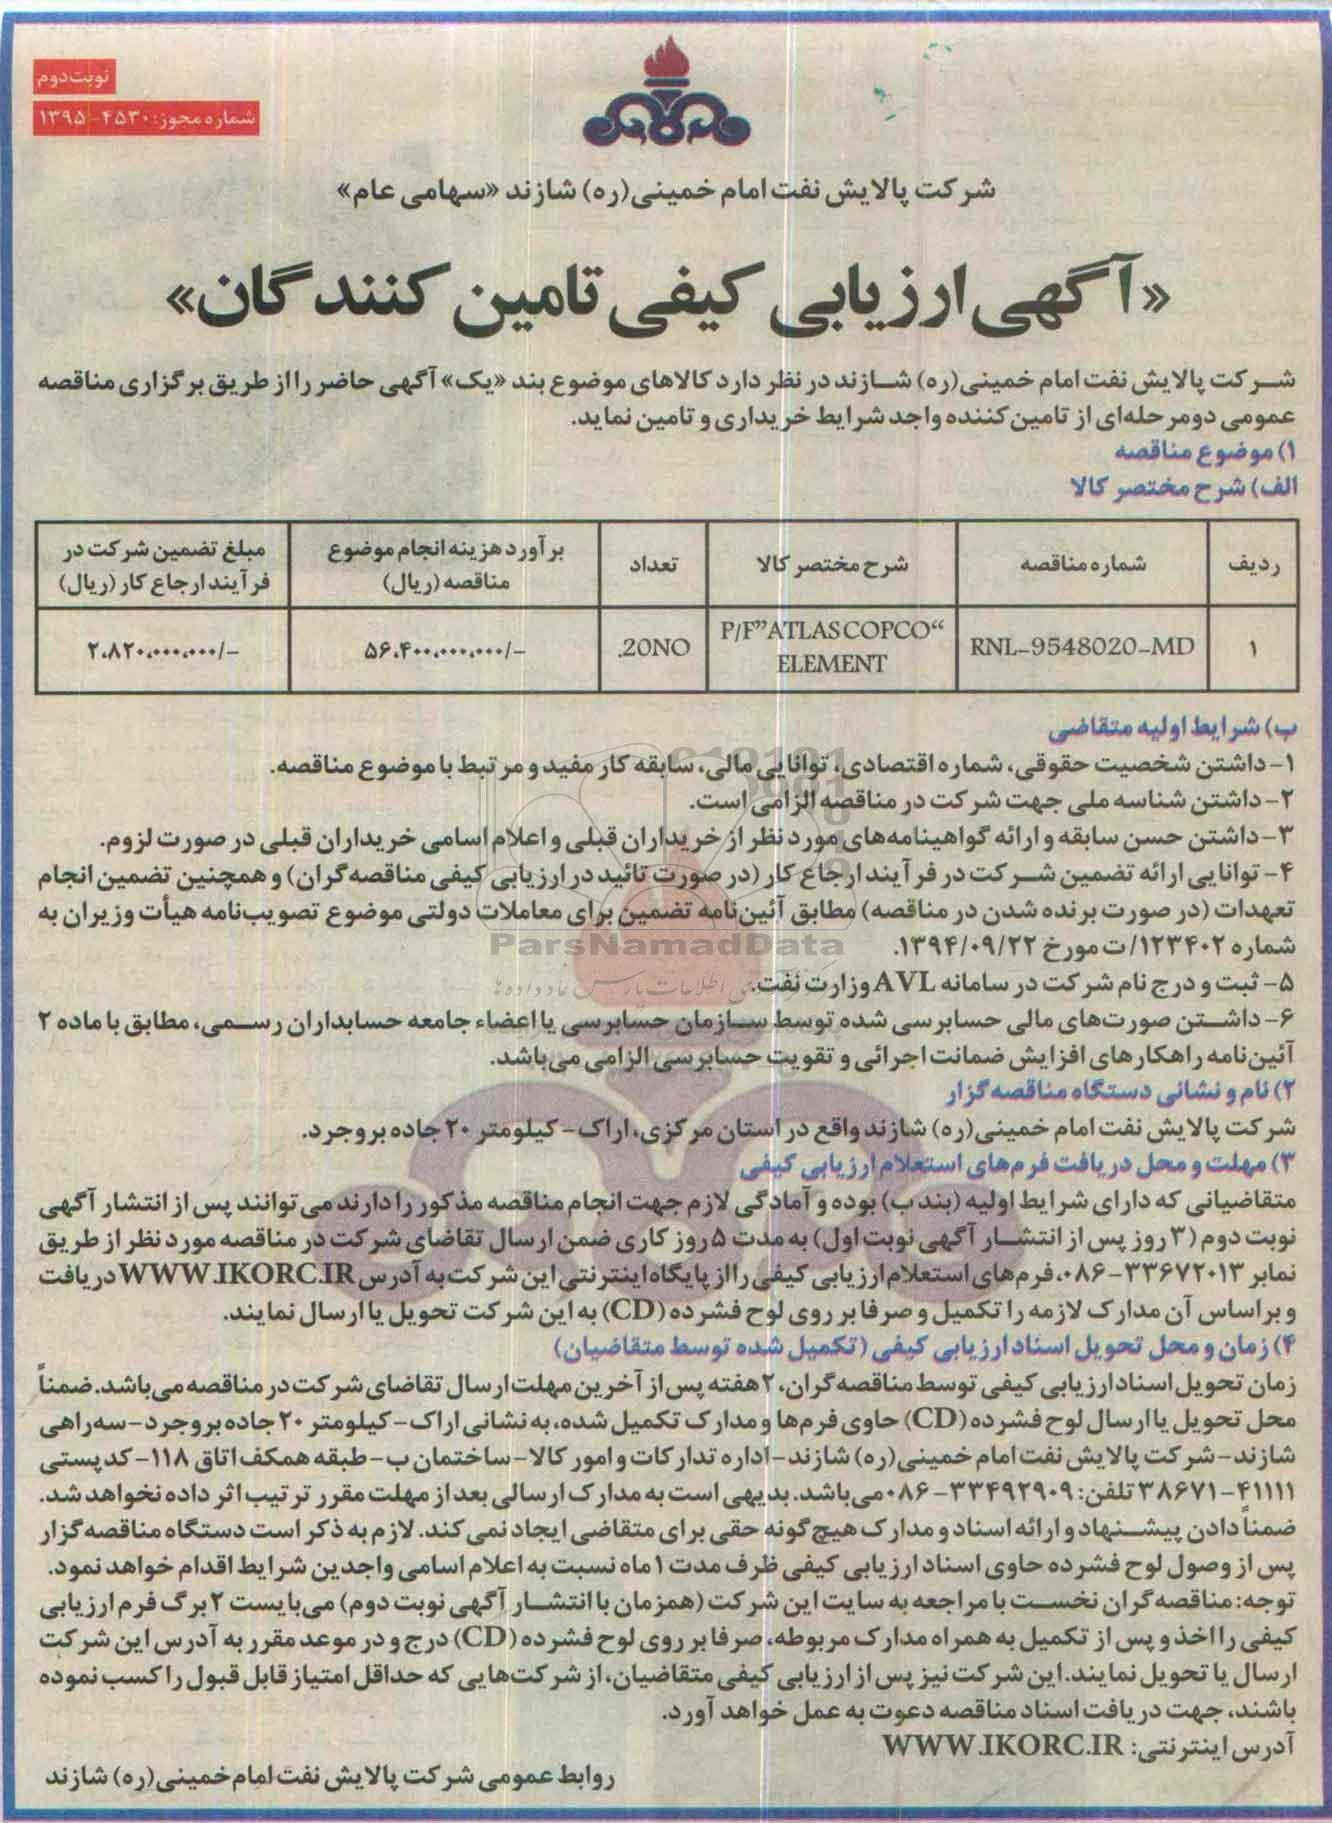 نوبت دوم
شماره مجوز: ۴۵۳۰-۱۳۹۵
شرکت پالایش نفت امام خمینی(ره) شازند «سهامی عام»
«آگهی ارزیابی کیفی تامین کنندگان»
شرکت پالایش نفت امام خمینی(ره) شازند در نظر دارد کالاهای موضوع بند «یک» آگهی حاضر را از طریق برگزاری مناقصه
عمومی دومرحله‌ای از تامین‌کننده واجد شرایط خریداری و تامین نماید.
۱) موضوع مناقصه
الف) شرح مختصر کالا
ردیف | شماره مناقصه | شرح مختصر کالا | تعداد | برآورد هزینه انجام موضوع مناقصه (ریال) | مبلغ تضمین شرکت در فرآیند ارجاع کار (ریال)
۱ | RNL-9548020-MD | P/F”ATLAS COPCO“ ELEMENT | 20NO. | ۵۶،۴۰۰،۰۰۰،۰۰۰/- | ۲،۸۲۰،۰۰۰،۰۰۰/-
ب) شرایط اولیه متقاضی
۱- داشتن شخصیت حقوقی، شماره اقتصادی، توانایی مالی، سابقه کار مفید و مرتبط با موضوع مناقصه.
۲- داشتن شناسه ملی جهت شرکت در مناقصه الزامی است.
۳- داشتن حسن سابقه و ارائه گواهینامه‌های مورد نظر از خریداران قبلی و اعلام اسامی خریداران قبلی در صورت لزوم.
۴- توانایی ارائه تضمین شرکت در فرآیند ارجاع کار (در صورت تائید در ارزیابی کیفی مناقصه‌گران) و همچنین تضمین انجام
تعهدات (در صورت برنده شدن در مناقصه) مطابق آئین‌نامه تضمین برای معاملات دولتی موضوع تصویب‌نامه هیأت وزیران به
شماره ۱۲۳۴۰۲/ت مورخ ۱۳۹۴/۰۹/۲۲.
۵- ثبت و درج نام شرکت در سامانه AVL وزارت نفت.
۶- داشتن صورت‌های مالی حسابرسی شده توسط سازمان حسابرسی یا اعضاء جامعه حسابداران رسمی، مطابق با ماده ۲
آئین‌نامه راهکارهای افزایش ضمانت اجرائی و تقویت حسابرسی الزامی می‌باشد.
ParsNamadData
۲) نام و نشانی دستگاه مناقصه‌گزار
شرکت پالایش نفت امام خمینی(ره) شازند واقع در استان مرکزی، اراک- کیلومتر ۲۰ جاده بروجرد.
۳) مهلت و محل دریافت فرم‌های استعلام ارزیابی کیفی
متقاضیانی که دارای شرایط اولیه (بند ب) بوده و آمادگی لازم جهت انجام مناقصه مذکور را دارند می‌توانند پس از انتشار آگهی
نوبت دوم (۳ روز پس از انتشار آگهی نوبت اول) به مدت ۵ روز کاری ضمن ارسال تقاضای شرکت در مناقصه مورد نظر از طریق
نمابر ۳۳۶۷۲۰۱۳-۰۸۶، فرم‌های استعلام ارزیابی کیفی را از پایگاه اینترنتی این شرکت به آدرس WWW.IKORC.IR دریافت
و براساس آن مدارک لازمه را تکمیل و صرفا بر روی لوح فشرده (CD) به این شرکت تحویل یا ارسال نمایند.
۴) زمان و محل تحویل اسناد ارزیابی کیفی (تکمیل شده توسط متقاضیان)
زمان تحویل اسناد ارزیابی کیفی توسط مناقصه‌گران، ۲ هفته پس از آخرین مهلت ارسال تقاضای شرکت در مناقصه می‌باشد. ضمناً
محل تحویل یا ارسال لوح فشرده (CD) حاوی فرم‌ها و مدارک تکمیل شده، به نشانی اراک- کیلومتر ۲۰ جاده بروجرد-سه‌راهی
شازند- شرکت پالایش نفت امام خمینی(ره) شازند- اداره تدارکات و امور کالا- ساختمان ب- طبقه همکف اتاق ۱۱۸- کدپستی
۴۱۱۱۱-۳۸۶۷۱ تلفن: ۳۳۴۹۲۹۰۹-۰۸۶ می‌باشد. بدیهی است به مدارک ارسالی بعد از مهلت مقرر ترتیب اثر داده نخواهد شد.
ضمناً دادن پیشنهاد و ارائه اسناد و مدارک هیچ‌گونه حقی برای متقاضی ایجاد نمی‌کند. لازم به ذکر است دستگاه مناقصه‌گزار
پس از وصول لوح فشرده حاوی اسناد ارزیابی کیفی ظرف مدت ۱ ماه نسبت به اعلام اسامی واجدین شرایط اقدام خواهد نمود.
توجه: مناقصه‌گران نخست با مراجعه به سایت این شرکت (همزمان با انتشار آگهی نوبت دوم) می‌بایست ۲ برگ فرم ارزیابی
کیفی را اخذ و پس از تکمیل به همراه مدارک مربوطه، صرفا بر روی لوح فشرده (CD) درج و در موعد مقرر به آدرس این شرکت
ارسال یا تحویل نمایند. این شرکت نیز پس از ارزیابی کیفی متقاضیان، از شرکت‌هایی که حداقل امتیاز قابل قبول را کسب نموده
باشند، جهت دریافت اسناد مناقصه دعوت به عمل خواهد آورد.
آدرس اینترنتی: WWW.IKORC.IR
روابط عمومی شرکت پالایش نفت امام خمینی(ره) شازند